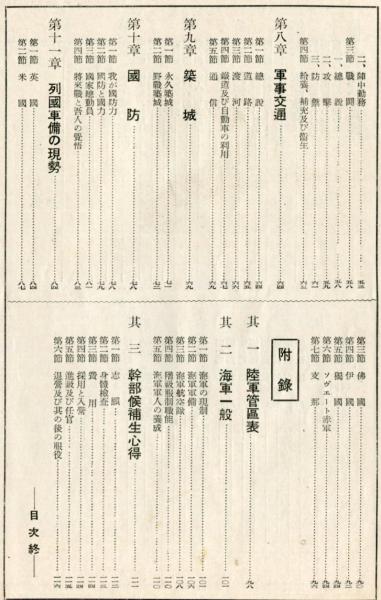 二、陣中勤務……五三
第三節 戰鬪……五八
一、總說……五八
二、攻擊……五九
三、防禦……六一
第四節 給養、補充及び衞生
第八章 軍事交通
第一節 總說……六四
第二節 道路……六四
第三節 渡河……六五
第四節 鐵道及び自動車の利用
第五節 通信……六七
第九章 築城……六九
第一節 永久築城……七一
第二節 野戰築城
第十章 國防
第一節 我が國防力
第二節 國防と國力
第三節 國家總動員……八一
第四節 將來戰と吾人の覺悟
第十一章 列國軍備の現勢……八四
第一節 英國……八四
第二節 米國……八七
第三節 佛國……九〇
第四節 伊國
第五節 獨國
第六節 ソヴエート赤軍
第七節 支那……九六
附錄
其一 陸軍管區表……九八
其二 海軍一般……一〇二
第一節 海軍の現制……一〇二
第二節 海軍軍備
第三節 海軍航空隊
第四節 階級服制職能
第五節 海軍軍人の養成……一一〇
其三 幹部候補生心得……一一二
第一節 志願
第二節 身體檢査
第三節 費用
第四節 採用と入營
第五節 進級及び任官
第六節 退營及び其の後の服役……一一六
——目次終——